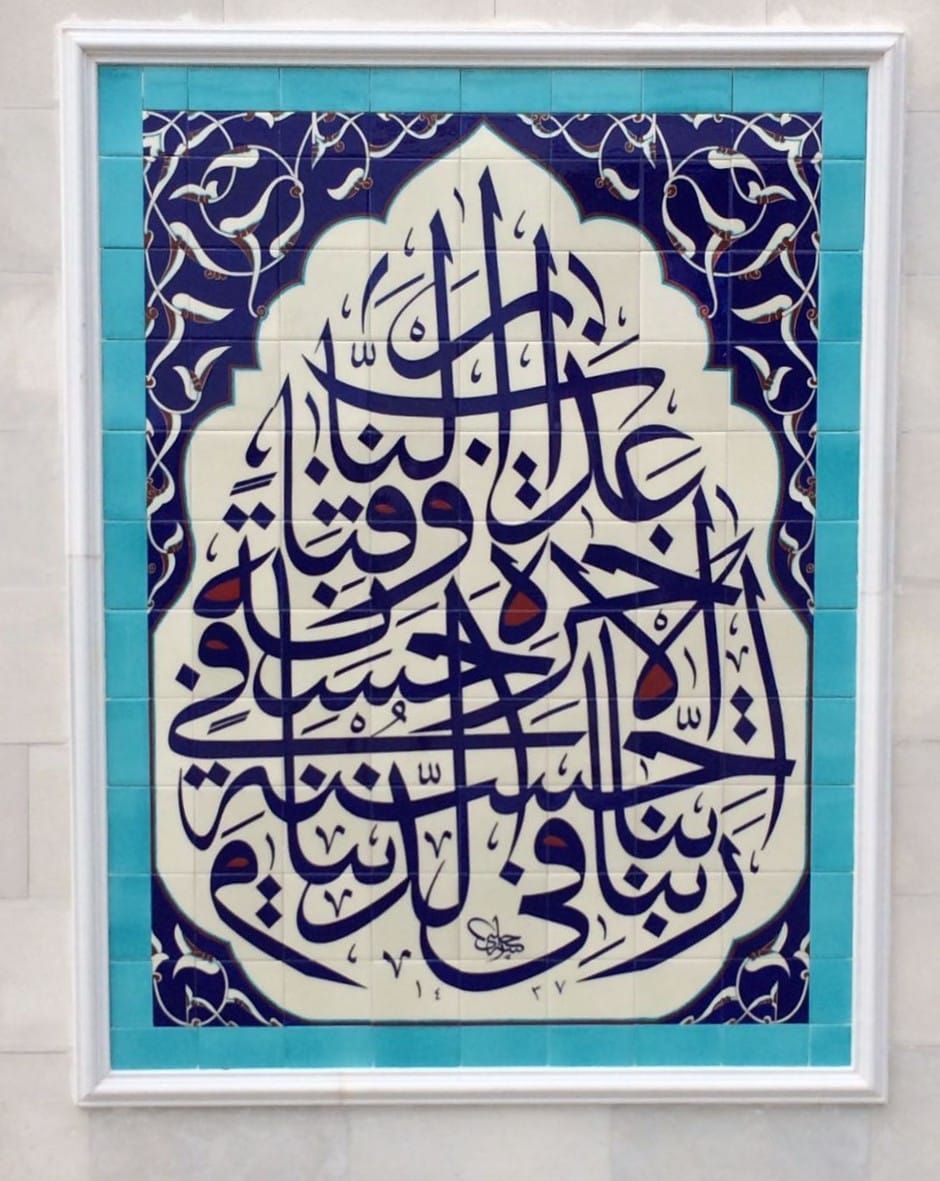 ربنا آتنا في الدنيا حسنة
وفي الآخرة حسنة
وقنا عذاب النار
١٤٣٧